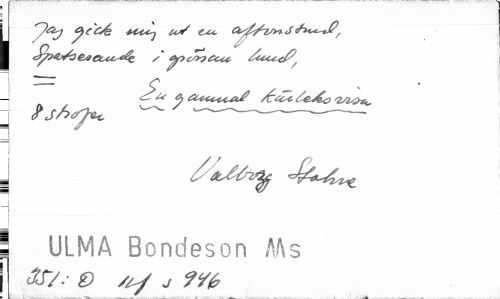 Jag gick mig ut en aftonstund,
Spatserande i grönan lund,
=
En gammal kärleksvisa
8 strofer
Valborg Stahre
ULMA Bondeson Ms
351: s 946